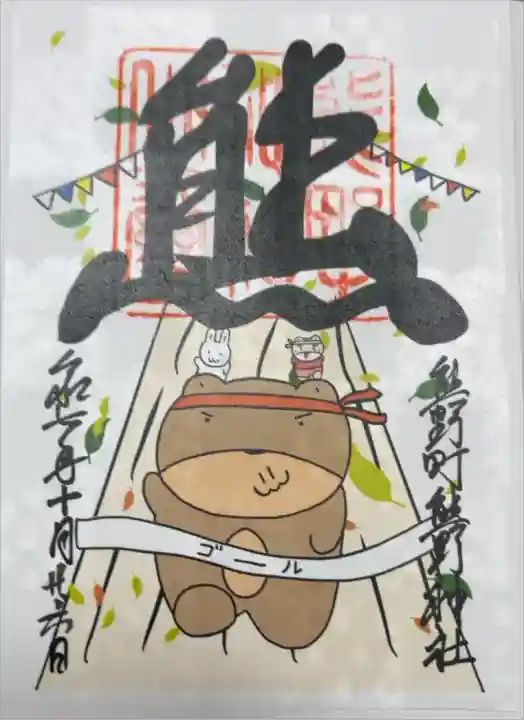 熊
熊野町熊野神社
ゴール
令和七年十月廿六日